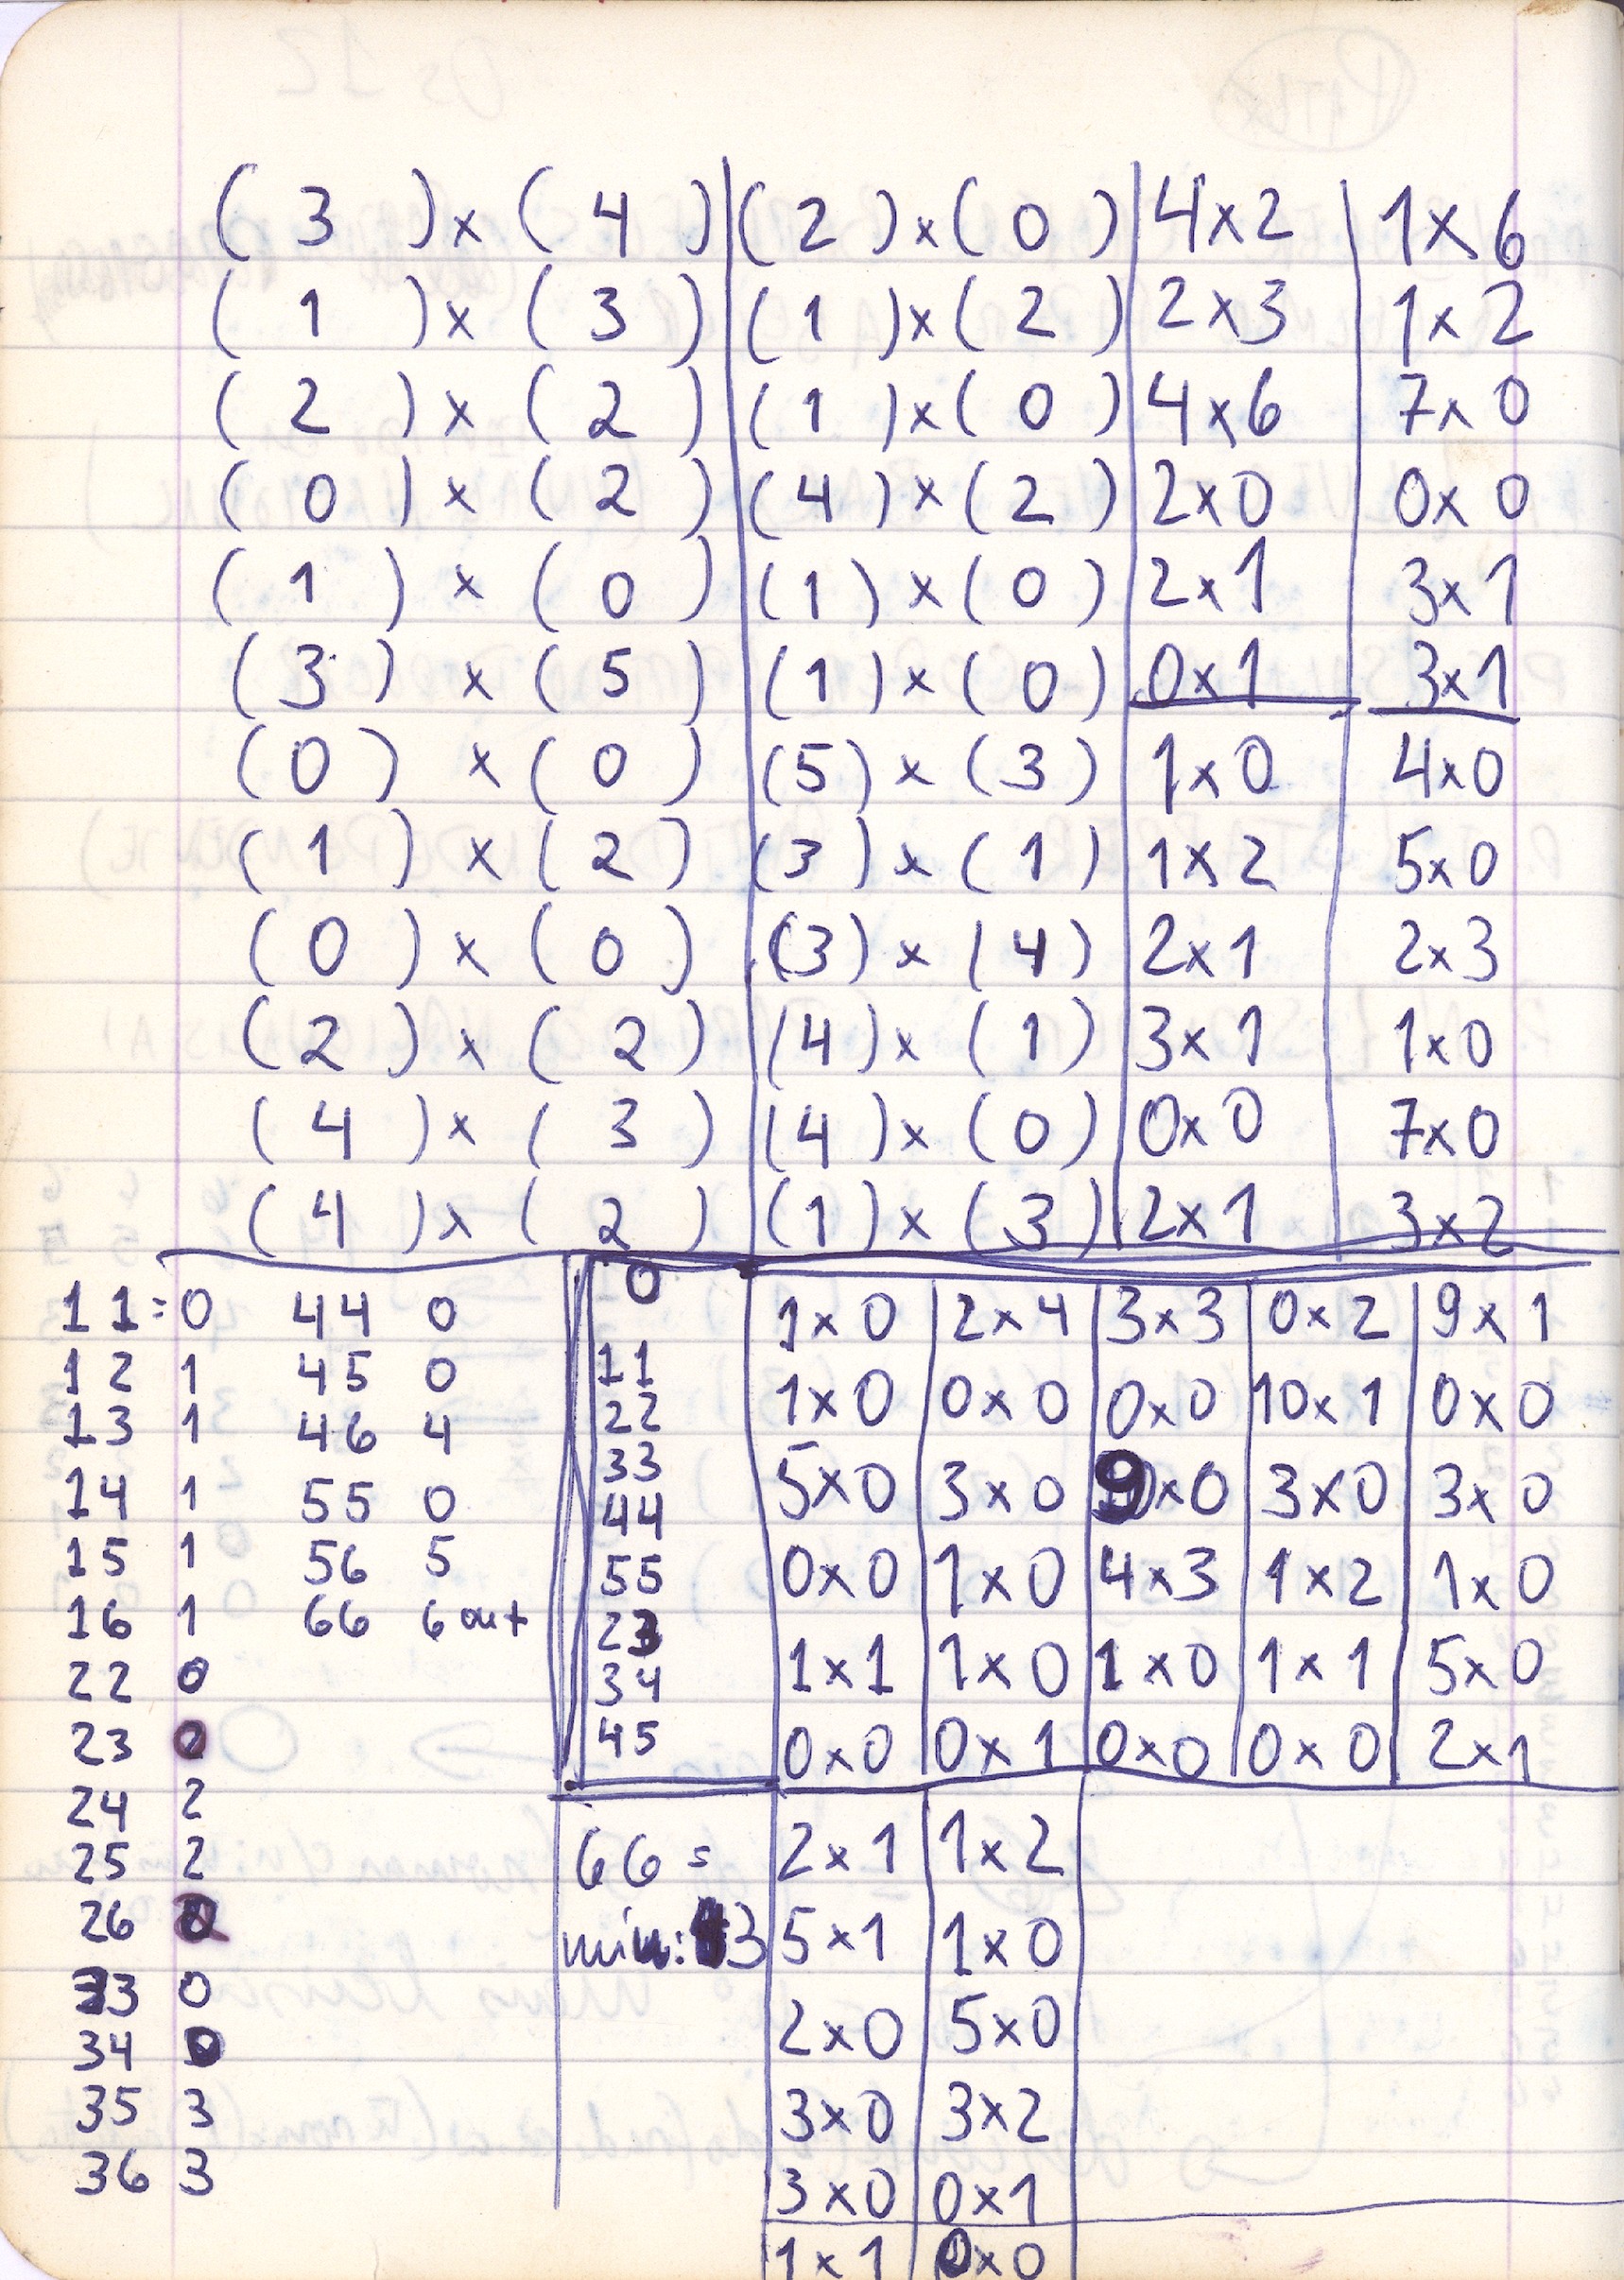 ( 3 ) x ( 4 ) ( 2 ) x ( 0 ) 4x2 1x6
( 1 ) x ( 3 ) ( 1 ) x ( 2 ) 2x3 1x2
( 2 ) x ( 2 ) ( 1 ) x ( 0 ) 4x6 7x0
( 0 ) x ( 2 ) ( 4 ) x ( 2 ) 2x0 0x0
( 1 ) x ( 0 ) ( 1 ) x ( 0 ) 2x1 3x1
( 3 ) x ( 5 ) ( 1 ) x ( 0 ) 0x1 3x1
( 0 ) x ( 0 ) ( 5 ) x ( 3 ) 1x0 4x0
( 1 ) x ( 2 ) ( 3 ) x ( 1 ) 1x2 5x0
( 0 ) x ( 0 ) ( 3 ) x ( 4 ) 2x1 2x3
( 2 ) x ( 2 ) ( 4 ) x ( 1 ) 3x1 1x0
( 4 ) x ( 3 ) ( 4 ) x ( 0 ) 0x0 7x0
( 4 ) x ( 2 ) ( 1 ) x ( 3 ) 2x1 3x2
11=0 44 0
12 1 45 0
13 1 46 4
14 1 55 0
15 1 56 5
16 1 66 6 out
22 0
23
24 2
25 2
26
33 0
34
35 3
36 3
0
11
22
33
44
55
23
34
45
1x0 2x4 3x3 0x2 9x1
1x0 0x0 0x0 10x1 0x0
5x0 3x0 9x0 3x0 3x0
0x0 1x0 4x3 1x2 1x0
1x1 1x0 1x0 1x1 5x0
0x0 0x1 0x0 0x0 2x1
66=
min: 3
2x1 1x2
5x1 1x0
2x0 5x0
3x0 3x2
3x0 0x1
1x1 0x0